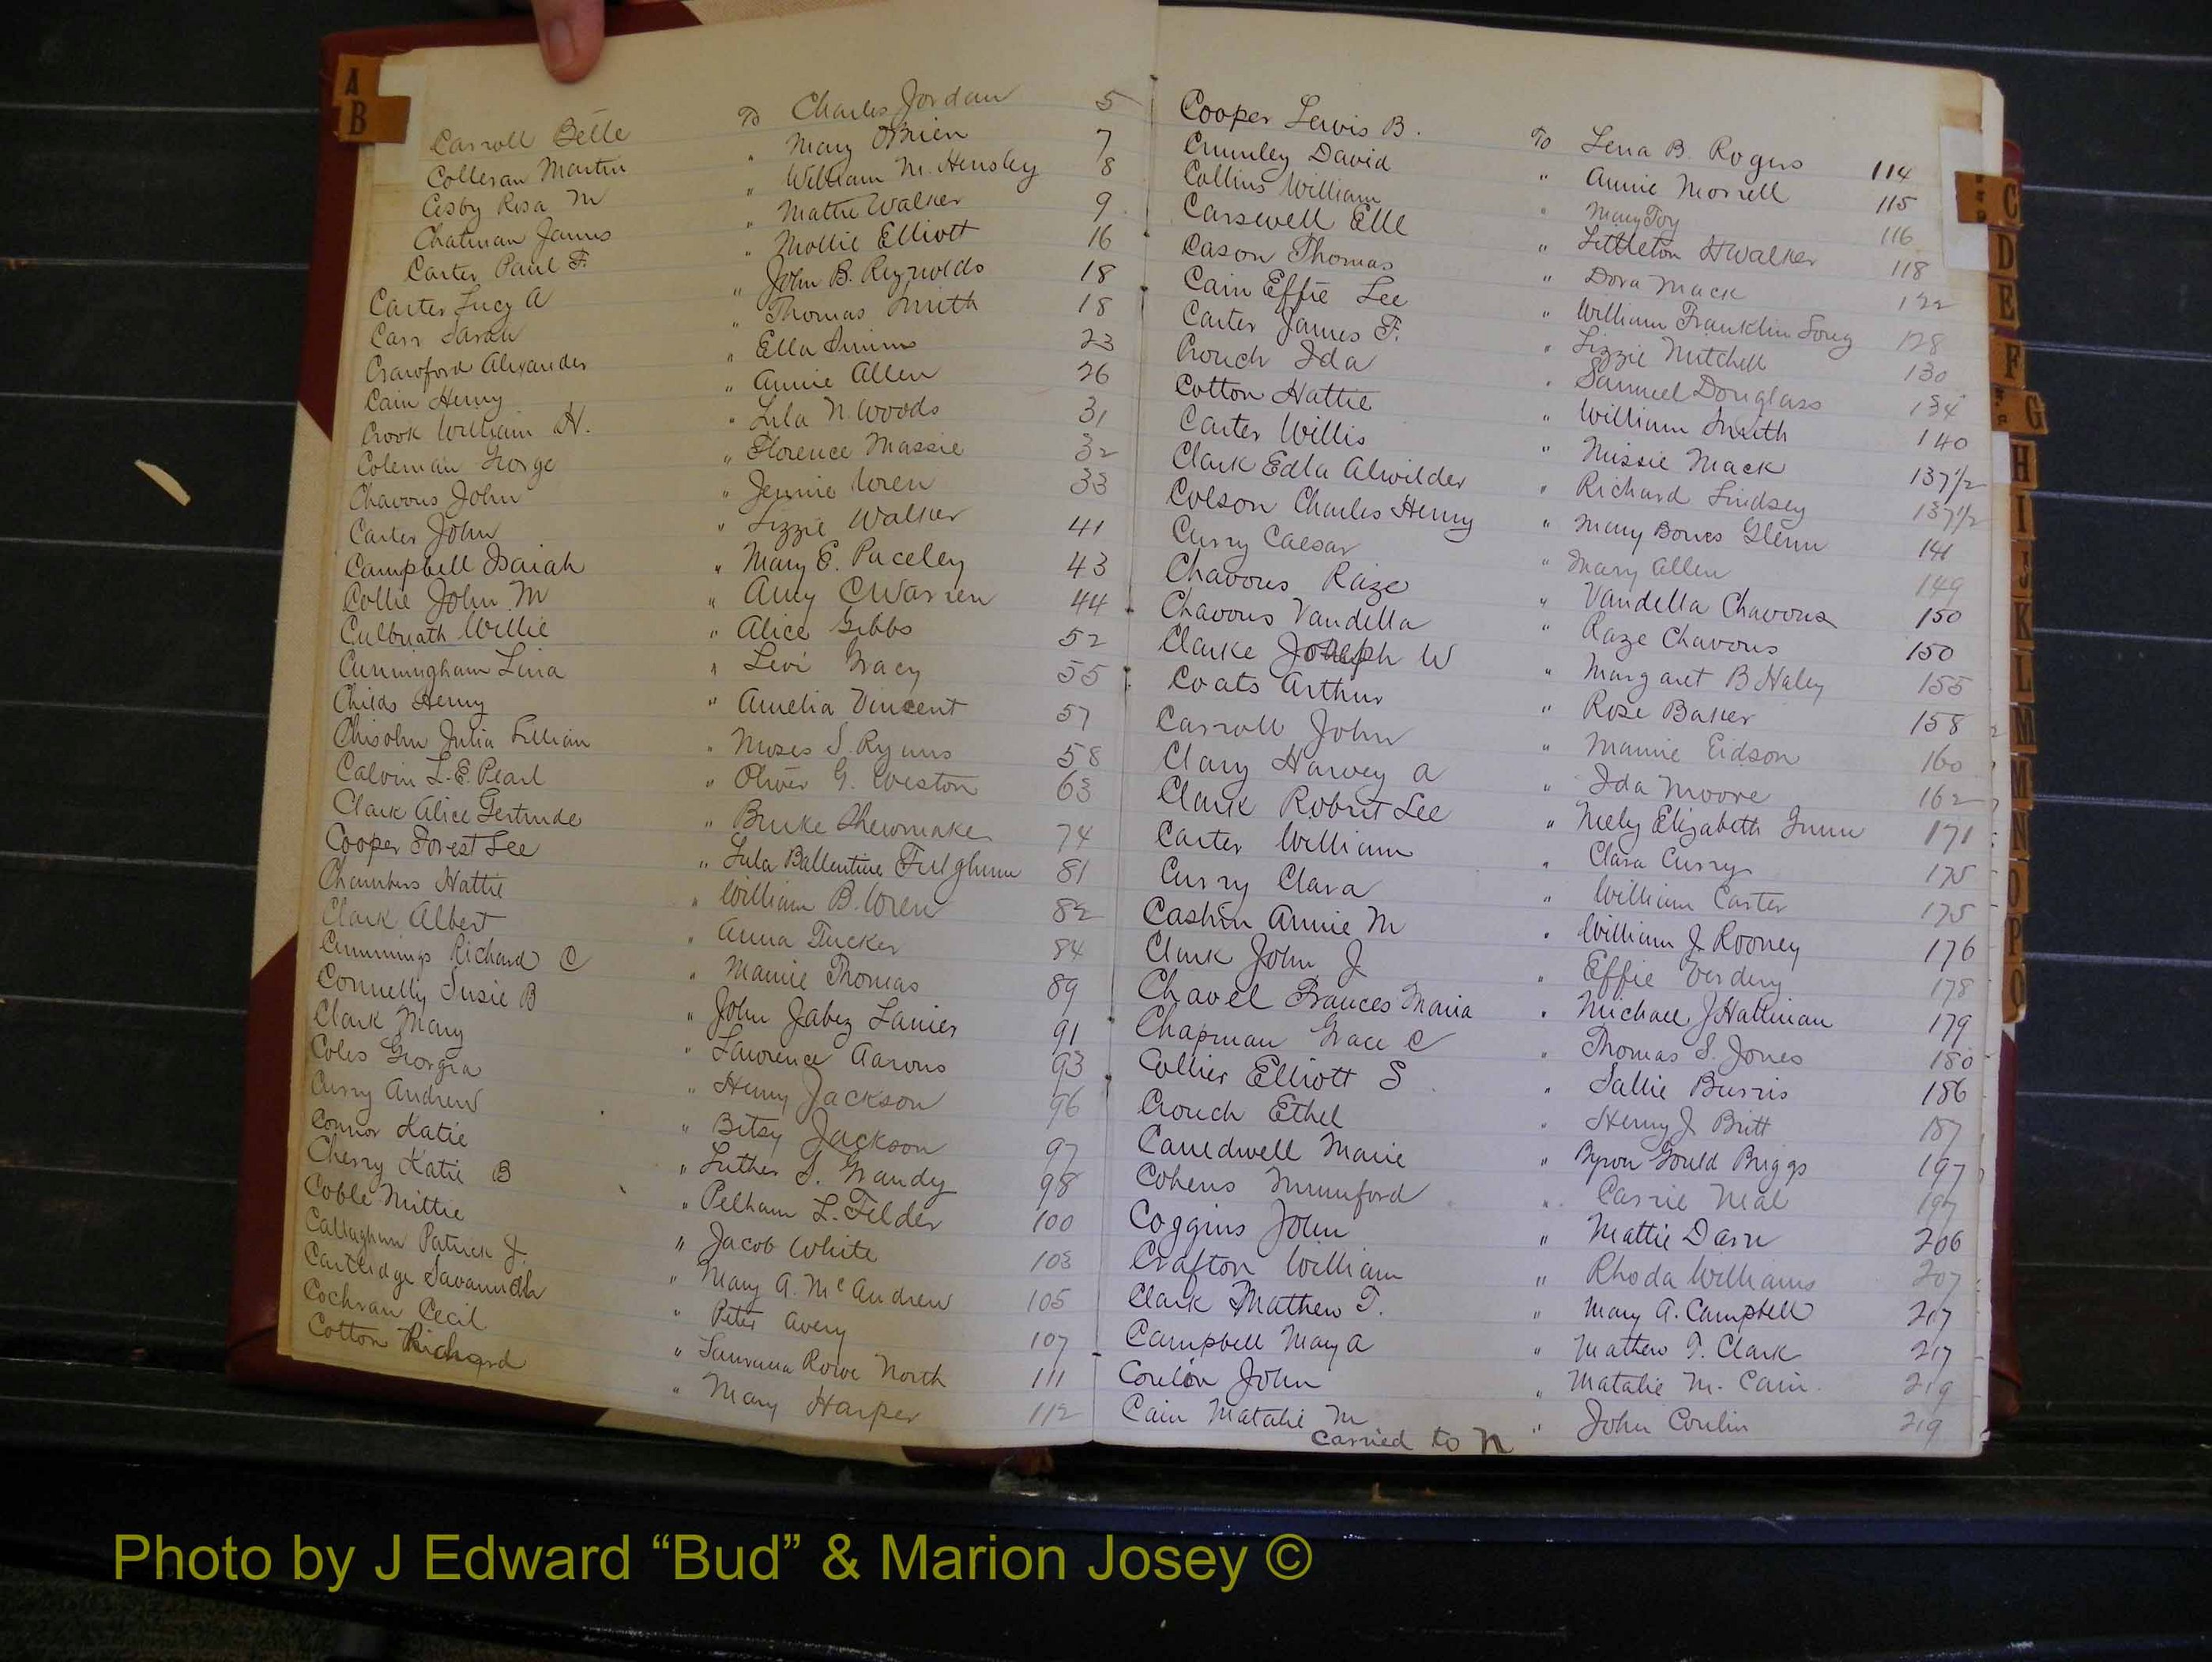 A
B
Carroll Belle To Charles Jordan 5
Colleran Martin " Mary O'Brien 7
Cosby Rosa M " William M. Hensley 8
Chatman James " Mattie Walker 9
Carter Paul F. " Mollie Elliott 16
Carter Lucy A " John B. Reynolds 18
Carr Sarah " Thomas Smith 18
Crawford Alexander " Ella Simms 23
Cain Henry " Annie Allen 26
Crook William H. " Lila N. Woods 31
Coleman George " Florence Massie 32
Chavous John " Jennie Wren 33
Carter John " Lizzie Walker 41
Campbell Isaiah " Mary E. Paceley 43
Collie John M " Amy C Warren 44
Culbreath Willie " Alice Gibbs 52
Cunningham Lina " Levi Gracy 55
Childs Henry " Amelia Vincent 57
Chisolm Julia Lillian " Moses S. Ryans 58
Calvin L. E. Pearl " Oliver G. Weston 63
Clark Alice Gertrude " Burke Shewmake 74
Cooper Forest Lee " Lula Ballentine Fulghum 81
Chambers Hattie " William B. Wren 82
Clark Albert " Anna Tucker 84
Cummings Richard C " Mamie Thomas 89
Connelly Susie B " John Jabez Lanier 91
Clark Mary " Lawrence Aarons 93
Coles Georgia " Henry Jackson 96
Curry Andrew " Betsy Jackson 97
Connor Katie " Luther S. Grandy 98
Cherry Katie B " Pelham L. Felder 100
Coble Mittie " Jacob White 103
Callaghan Patrick J. " Mary A. McAndrew 105
Cartledge Savannah " Peter Avery 107
Cochran Cecil " Rowe North 111
Cotton Richard " Mary Harper 112
Cooper Lewis B. To Lena B. Rogers 114
Crumley David " Annie Morrell 115
Collins William " Mary Toy 116
Carswell Elle " Littleton H Walker 118
Cason Thomas " Dora Mack 122
Cain Effie Lee " William Franklin Long 128
Carter James F. " Lizzie Mitchell 130
Crouch Ida " Samuel Douglass 134
Cotton Hattie " William Smith 140
Carter Willis " Missie Mack 137½
Clark Edla Alwilder " Richard Lindsey 137½
Colson Charles Henry " Mary Bones Glenn 141
Curry Caesar " Mary Allen 149
Chavous Raze " Vandella Chavous 150
Chavous Vandella " Raze Chavous 150
Clarke Joseph W " Margaret B Haley 155
Coats Arthur " Rose Baker 158
Carroll John " Mamie Eidson 160
Clary Harvey A " Ida Moore 162
Clark Robert Lee " Neely Elizabeth Gunn 171
Carter William " Clara Curry 175
Curry Clara " William Carter 175
Cashin Annie M " William J. Rooney 176
Clark John J " Effie Verdery 178
Chavel Frances Maria " Michael J Haltinan 179
Chapman Grace C " Thomas S. Jones 180
Collier Elliott S " Sallie Burris 186
Crouch Ethel " Henry J Britt 187
Camedwell Marie " Byron Gould Briggs 197
Cohens Mumford " Carrie Neal 197
Coggins John " Mattie Darn 206
Crafton William " Rhoda Williams 207
Clark Mathew T. " Mary A. Campbell 217
Campbell Mary A " Mathew T. Clark 217
Conlon John " Matalie M. Cain 219
Cain Matalie M " John Conlin 219
carried to N
C
D
E
F
G
H
I
J
K
L
M
M
N
O
P
Q
Photo by J Edward “Bud” & Marion Josey ©